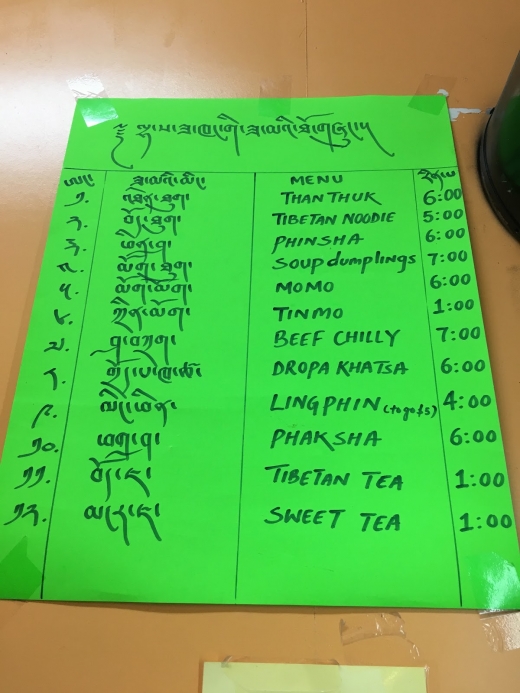 MENU
༡. འཐེན་ཐུག། THAN THUK 6:00
༢. བོད་ཐུག། TIBETAN NOODIE 5:00
༣. PHINSHA 6:00
༤. མོག་ཐུག། Soup dumplings 7:00
༥. མོག་མོག། MOMO 6:00
༦. TINMO 1:00
༧. BEEF CHILLY 7:00
༨. DROPA KHATSA 6:00
༩. LINGPHIN (to go $5) 4:00
༡༠. ཕག་ཤ། PHAKSHA 6:00
༡༡. བོད་ཇ། TIBETAN TEA 1:00
༡༢. མངར་ཇ། SWEET TEA 1:00